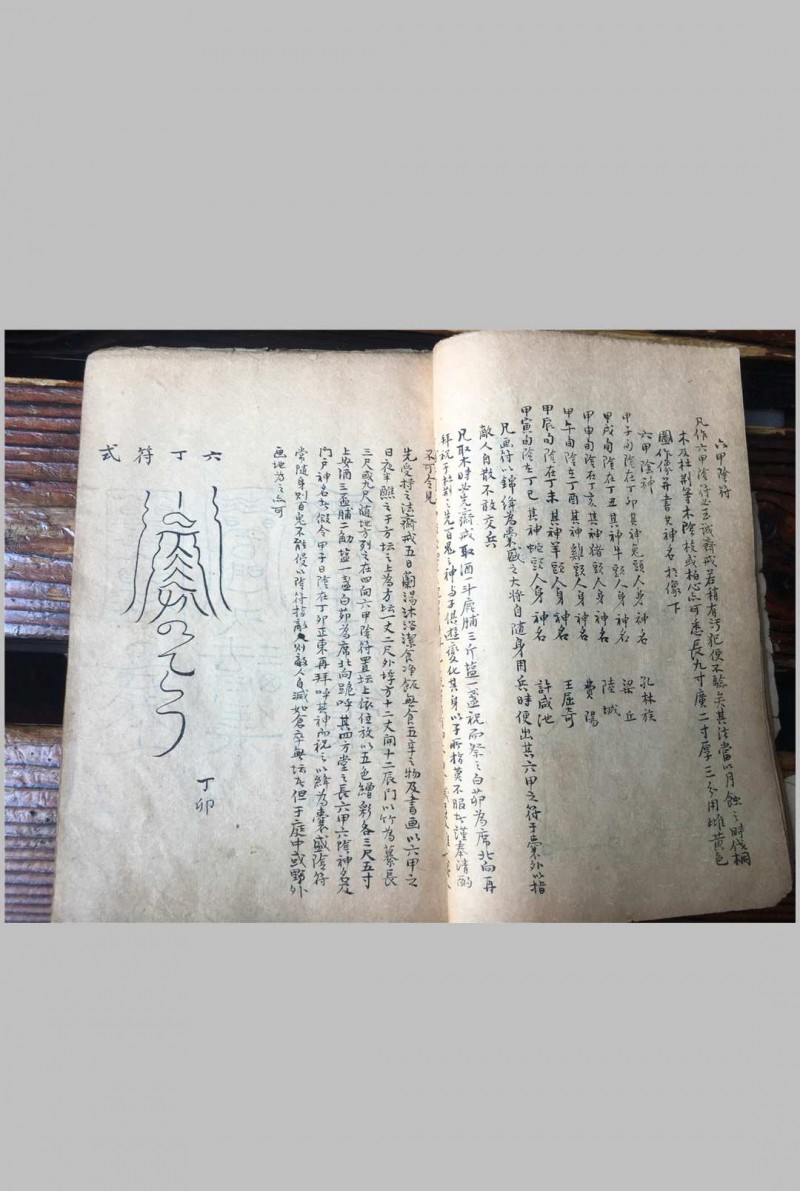 六甲陰符
凡作六甲陰符必至誠齋戒若稍有污犯便不驗矣其法當以月蝕之時伐桐
木及杜荆等木陰枝或柏心亦可悉長九寸廣二寸厚三分用雌黄色
圖作像并書其神名於像下
六甲陰神
甲子旬陰在丁卯其神兔頭人身神名 孔林族
甲戌旬陰在丁丑其神牛頭人身神名 梁丘
甲申旬陰在丁亥其神猪頭人身神名 陸城
甲午旬陰在丁酉其神雞頭人身神名 費陽
甲辰旬陰在丁未其神羊頭人身神名 王屈奇
甲寅旬陰在丁巳其神蛇頭人身神名 許咸池
凡画符以錦絳為囊盛之大將自隨身用兵時便出其六甲之符于囊外以指
敵人自散不敢交兵
凡取木時必先齋戒取酒一斗鹿脯三斤盐一盏祝而祭之白茆為席北向再
拜祝于杜荆之先百鬼之神与子俱遊變化其身以子所指莫不服者謹奉清酌
不可令見
先受持之法齋戒五日蘭湯沐浴潔食净飯無食五辛之物及書画以六甲之
日夜半醮之于方坛之上為方坛一丈二尺外埻方十二丈開十二辰門以竹為纂長
三尺或九尺随地方列之在四向六甲陰符置坛上依位放以五色繒彩各三尺五寸
上安酒三盃脯二觔盐一盏白茆為席北向跪呼其四方堂之長六甲六陰神名及
門户神名者假令甲子日陰在丁卯正東再拜呼其神而祝之以絳為囊盛陰符
常随身則百鬼不能侵以陰符指敵人則敵人自滅如倉卒無坛者但于庭中或野外
画地為之亦可
六丁符式
丁卯